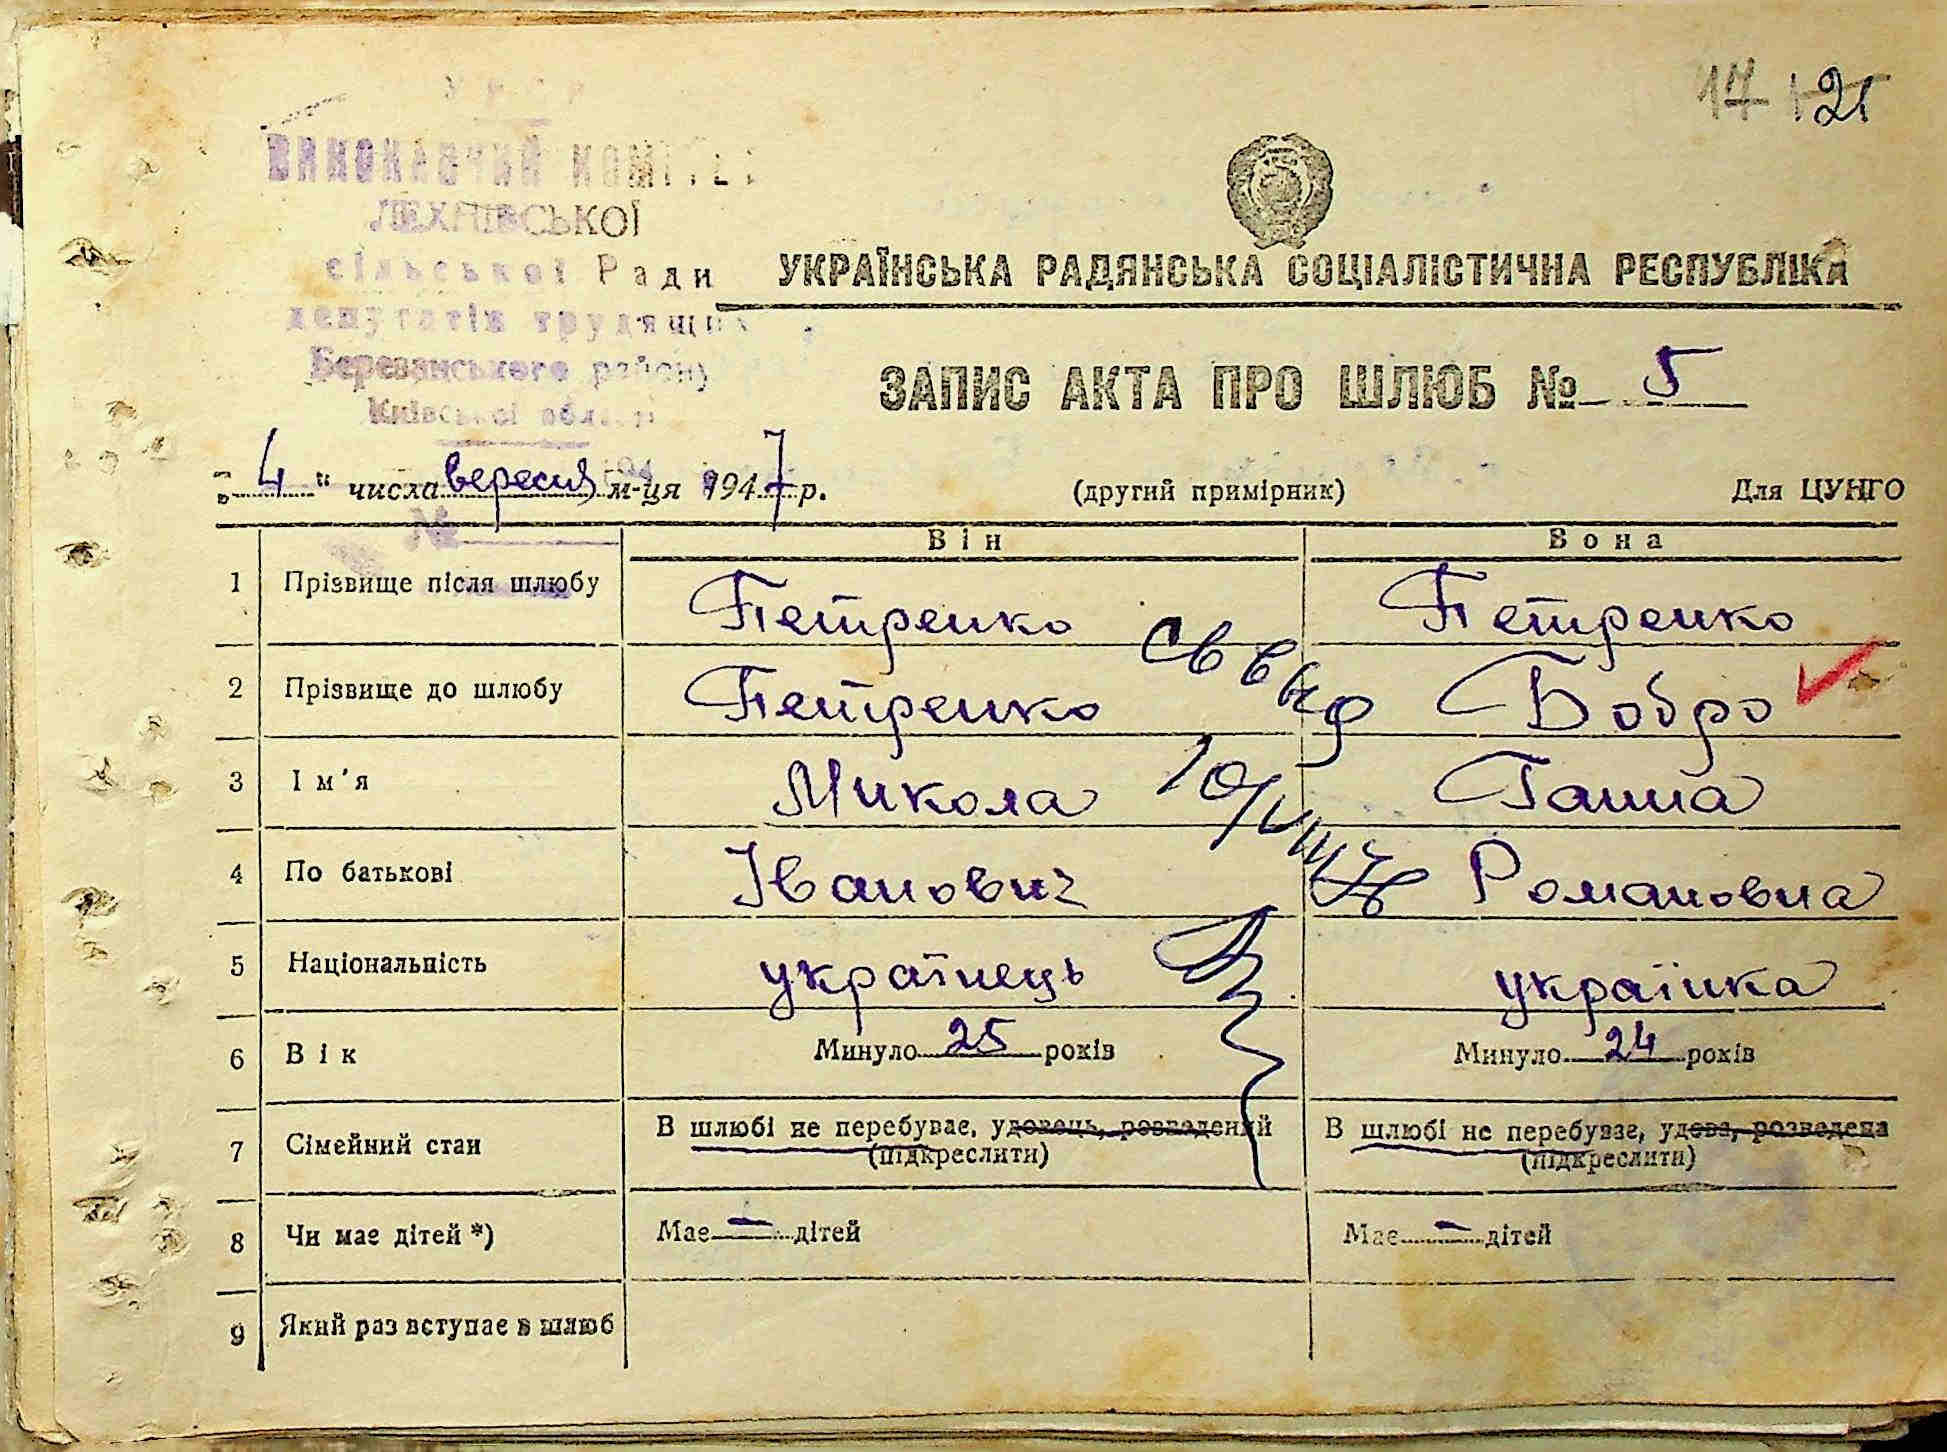 УРСР
ВИКОНАВЧИЙ КОМІТЕТ
ЛЕХНІВСЬКОЇ
сільської Ради
депутатів трудящих
Березанського району
Київської області
17 121
УКРАЇНСЬКА РАДЯНСЬКА СОЦІАЛІСТИЧНА РЕСПУБЛІКА
ЗАПИС АКТА ПРО ШЛЮБ № 5
„4“ числа вересня м-ця 1947 р. (другий примірник) Для ЦУНГО
№
Він Вона
1 Прізвище після шлюбу Петренко Петренко
2 Прізвище до шлюбу Петренко Бобро
3 Ім'я Микола Ганна
4 По батькові Іванович Романовна
5 Національність українець українка
6 Вік Минуло 25 років Минуло 24 років
7 Сімейний стан В шлюбі не перебуває, удовець, розведений (підкреслити) В шлюбі не перебуває, удова, розведена (підкреслити)
8 Чи має дітей *) Має — дітей Має — дітей
9 Який раз вступає в шлюб